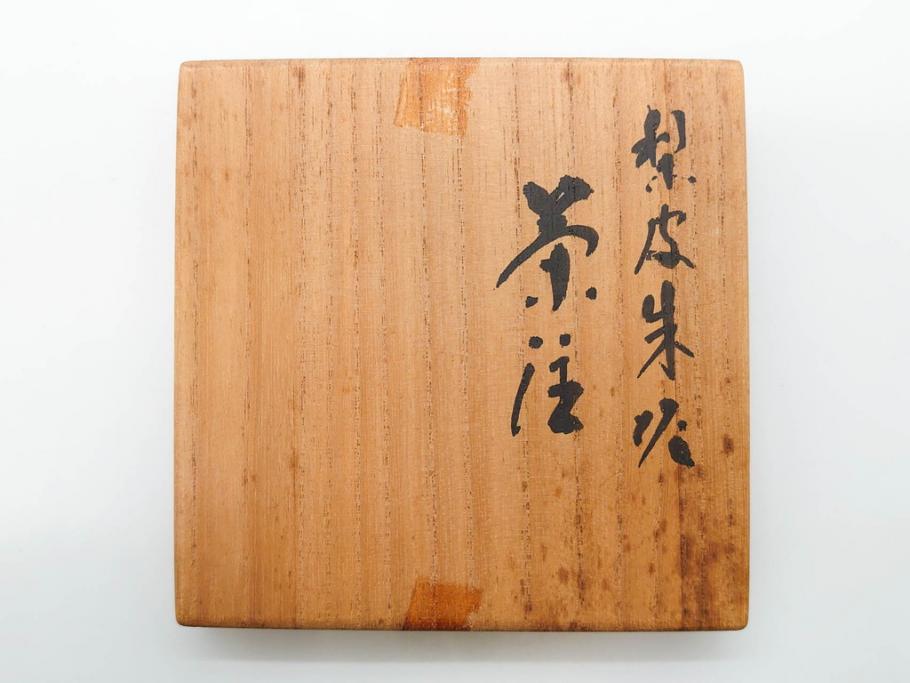 梨皮朱泥
茶注